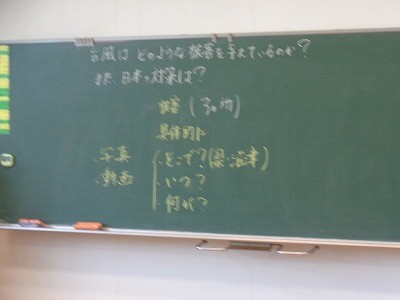 台風は どのような 被害を与えているのか?
また、日本の対策は?
被害 (3つ)
具体的に
・写真
・動画
・どこで?(県・沼津)
・いつ?
・何が?